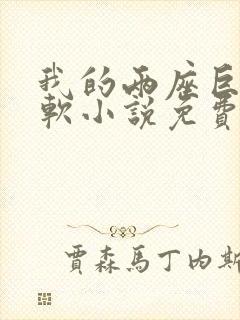 我的兩座巨
軟小說免費
賈森馬丁內斯